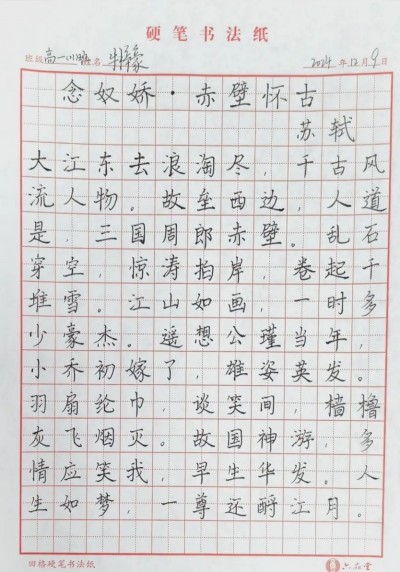 硬笔书法纸
班级 高一(1)班 姓名 2024年12月9日
念奴娇·赤壁怀古
苏轼
大江东去浪淘尽，千古风
流人物。故垒西边，人道
是，三国周郎赤壁。乱石
穿空，惊涛拍岸，卷起千
堆雪。江山如画，一时多
少豪杰。遥想公瑾当年，
小乔初嫁了，雄姿英发。
羽扇纶巾，谈笑间，樯橹
灰飞烟灭。故国神游，多
情应笑我，早生华发。人
生如梦，一尊还酹江月。
田格硬笔书法纸 六品堂